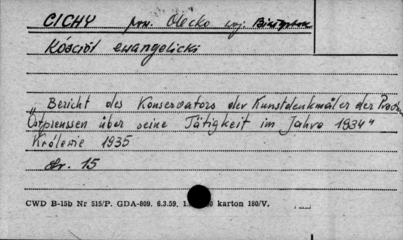 CICHY pow. Olecko woj. Białystok
Kościół ewangelicki
„Bericht des Konservators der Kunstdenkmäler der Prov.
Ostpreussen über seine Tätigkeit im Jahre 1934"
Królewiec 1935
str. 15
CWD B-15b Nr 515/P. GDA-809. 6.3.59. karton 180/V.